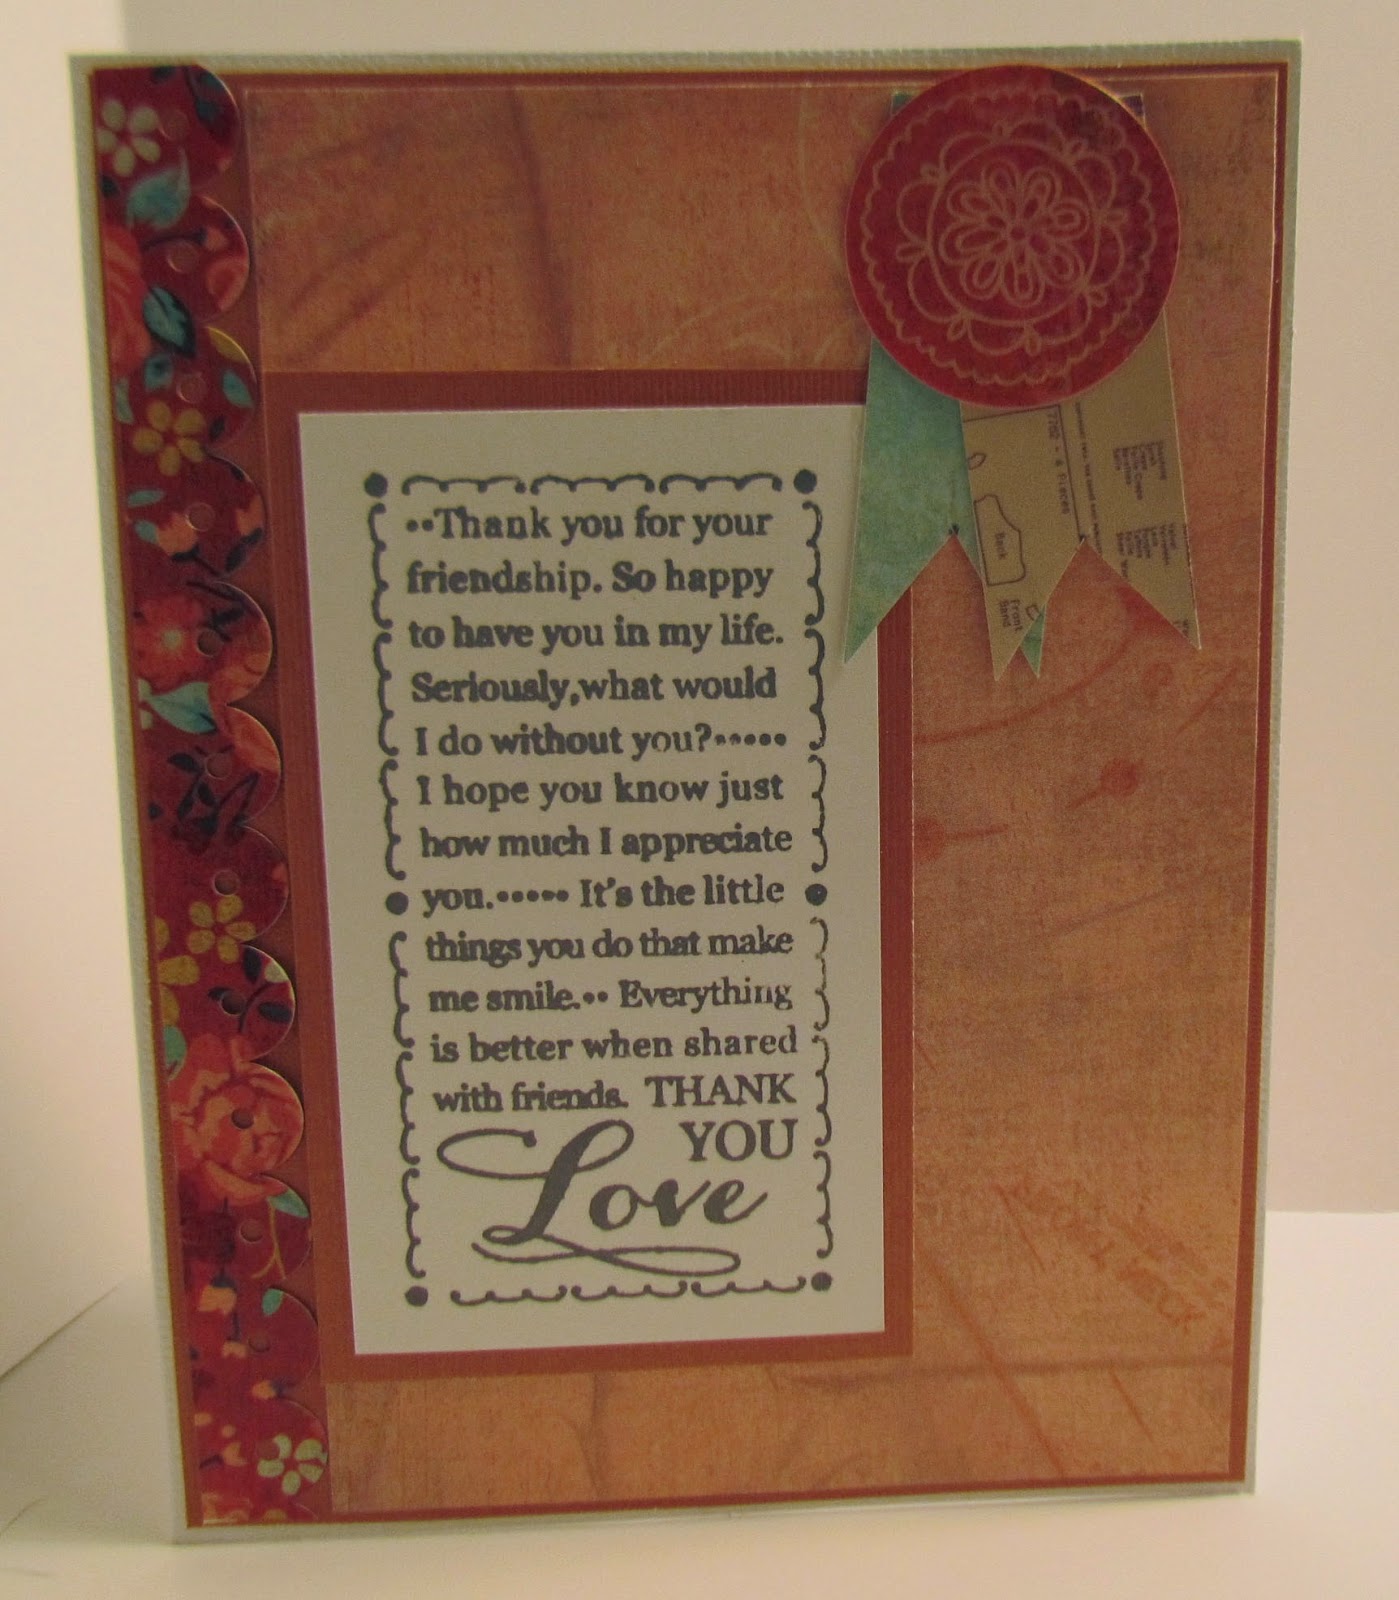 ••Thank you for your
friendship. So happy
to have you in my life.
Seriously,what would
I do without you?•••••
I hope you know just
how much I appreciate
you.••••• It's the little
things you do that make
me smile.•• Everything
is better when shared
with friends. THANK
YOU
Love
7782 • 4 Pieces
Back
Front
Band